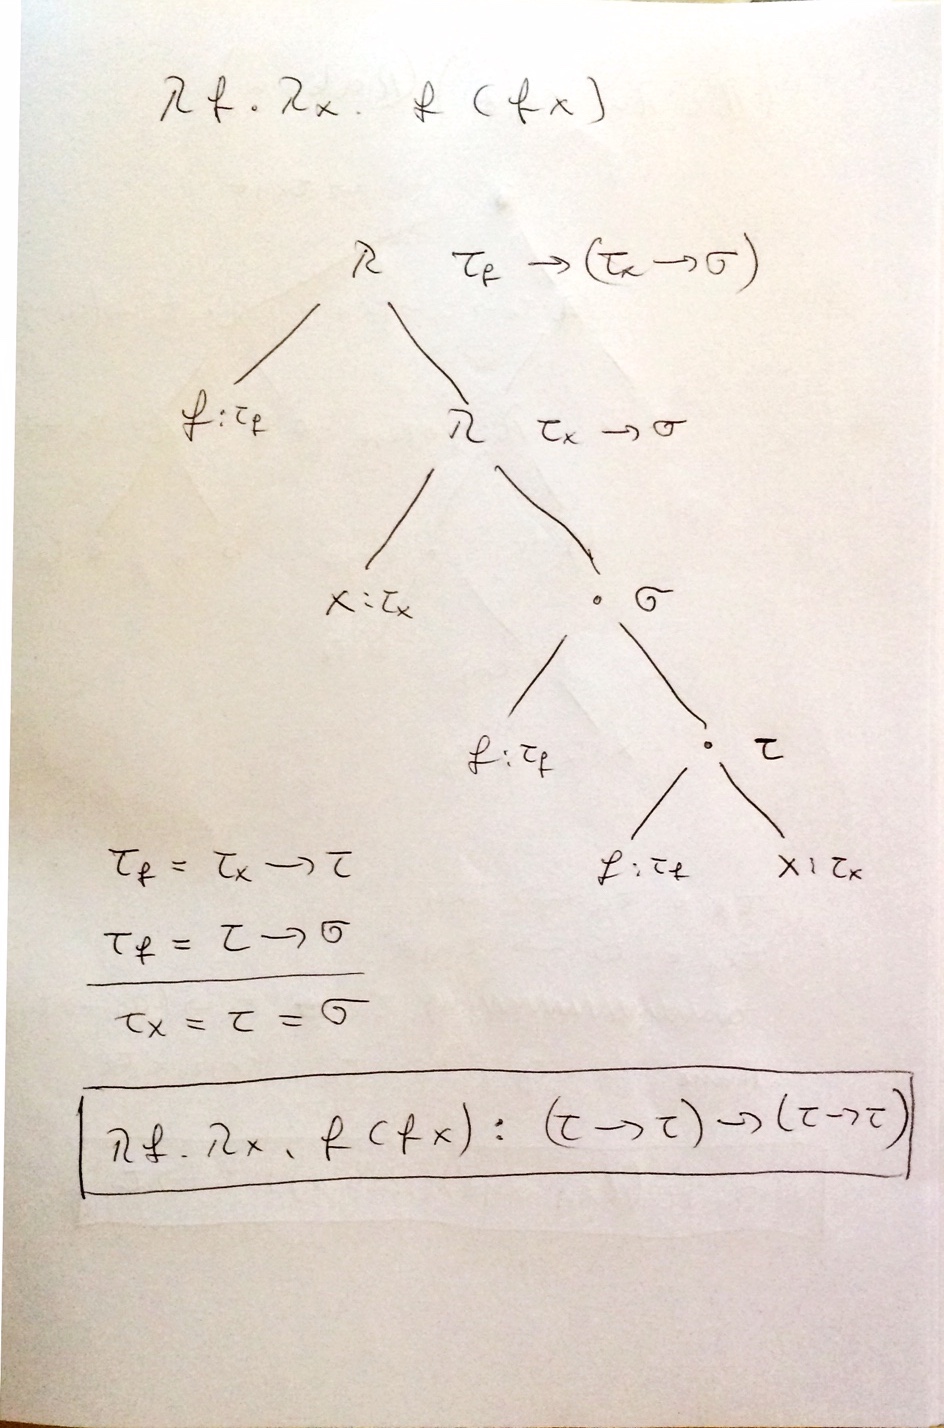 λf. λx. f (fx)
λ τf → (τx → σ)
f:τf λ τx → σ
x:τx . σ
f:τf . τ
f:τf x:τx
τf = τx → τ
τf = τ → σ
τx = τ = σ
λf. λx. f (fx) : (τ → τ) → (τ → τ)